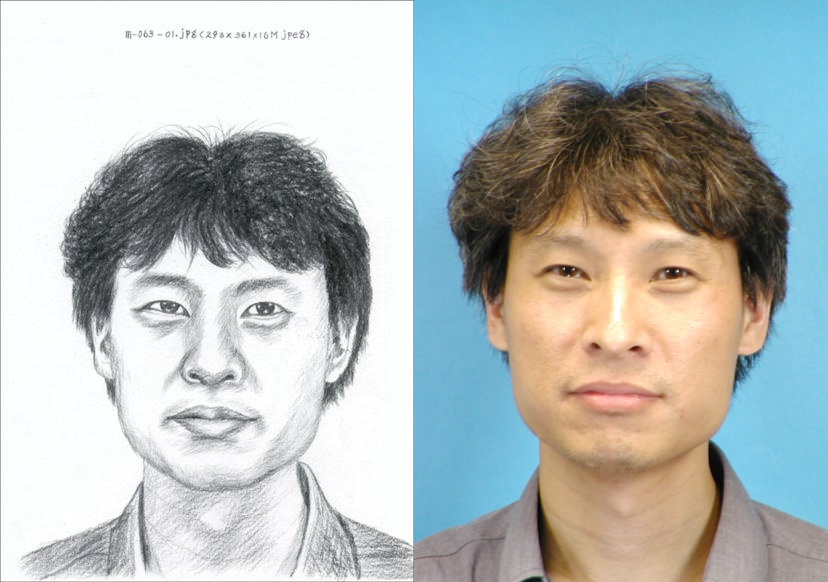 m-063-01.jpg(293x361x16M jpeg)